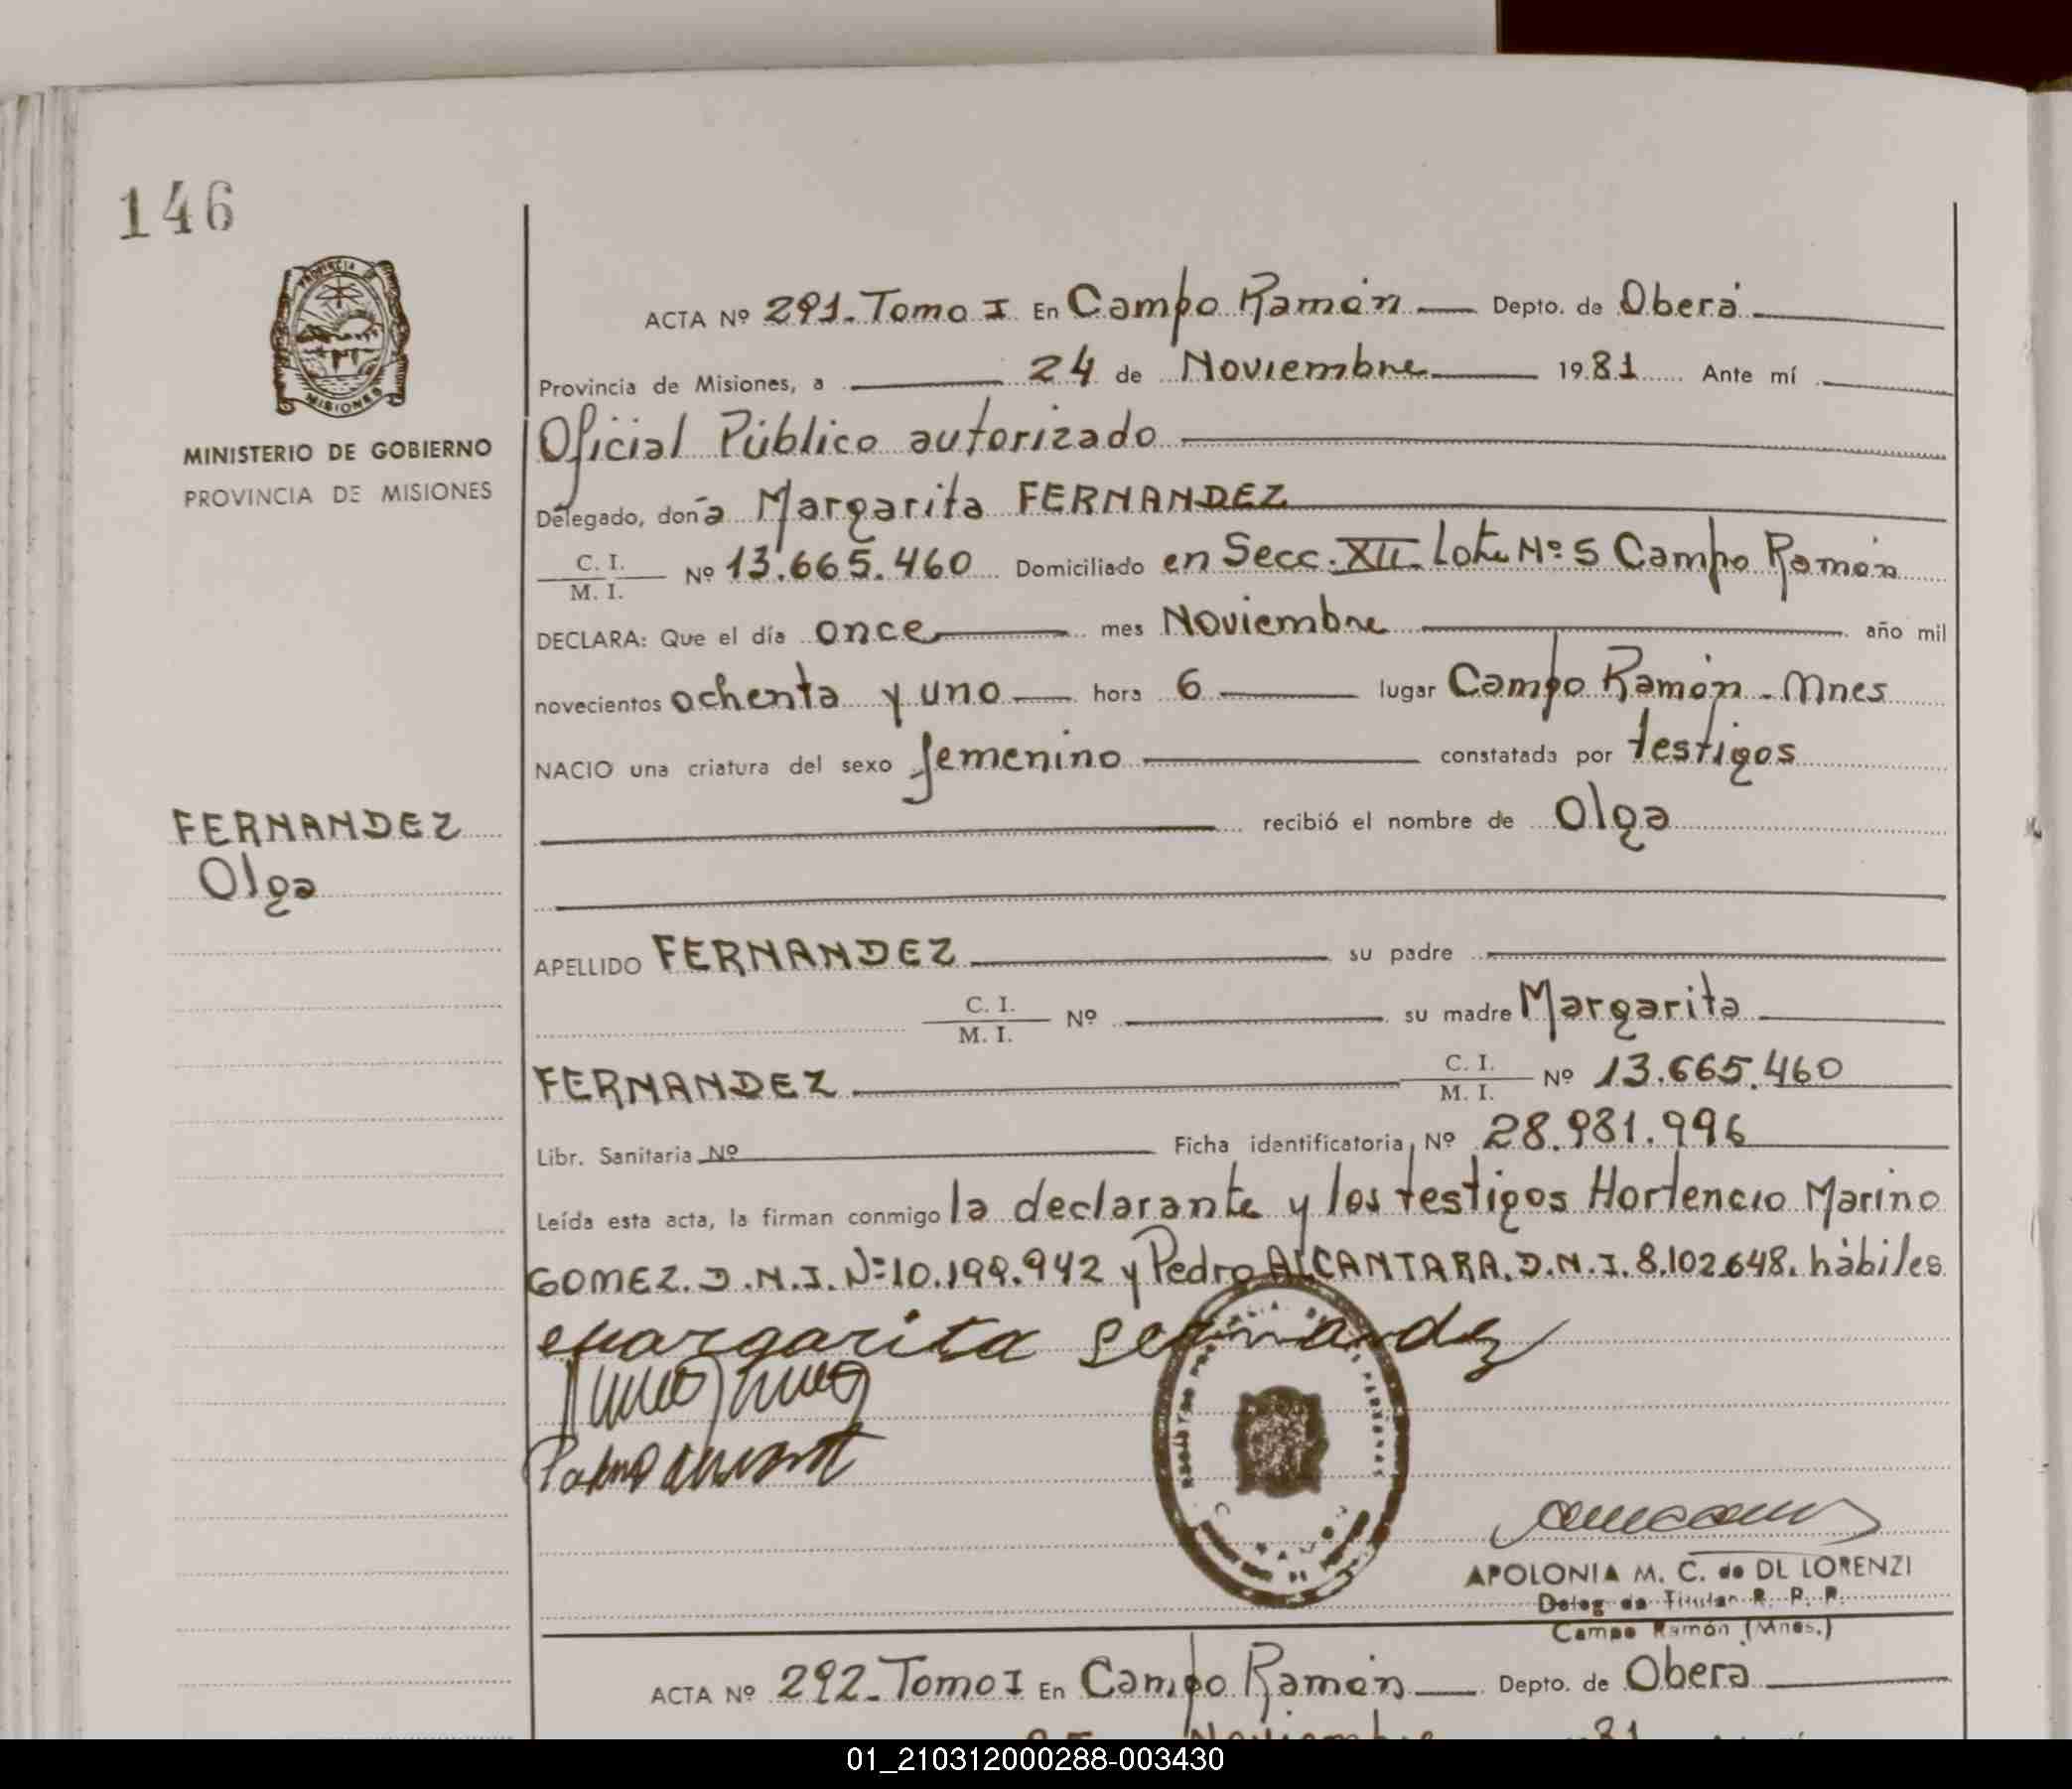 146
PROVINCIA DE
MISIONES
MINISTERIO DE GOBIERNO
PROVINCIA DE MISIONES
FERNANDEZ
Olga
ACTA Nº 291. Tomo I En Campo Ramón Depto. de Oberá
Provincia de Misiones, a 24 de Noviembre 1981 Ante mí
Oficial Público autorizado
Delegado, doña Margarita FERNANDEZ
C. I.
M. I. Nº 13.665.460 Domiciliado en Secc. XII. Lote Nº 5 Campo Ramón
DECLARA: Que el día once mes Noviembre año mil
novecientos ochenta y uno hora 6 lugar Campo Ramón - Mnes
NACIO una criatura del sexo femenino constatada por testigos
recibió el nombre de Olga
APELLIDO FERNANDEZ su padre
C. I.
M. I. Nº su madre Margarita
FERNANDEZ C. I.
M. I. Nº 13.665.460
Libr. Sanitaria Nº Ficha identificatoria, Nº 28.981.996
Leída esta acta, la firman conmigo la declarante y los testigos Hortencio Marino
GOMEZ. D.N.I. Nº 10.199.942 y Pedro ALCANTARA. D.N.I. 8.102.648. hábiles
Margarita Fernandez
APOLONIA M. C. de DL LORENZI
Deleg da Titular R. P. P.
Campo Ramón (Mnes.)
ACTA Nº 292. Tomo I En Campo Ramón Depto. de Obera
01_210312000288-003430